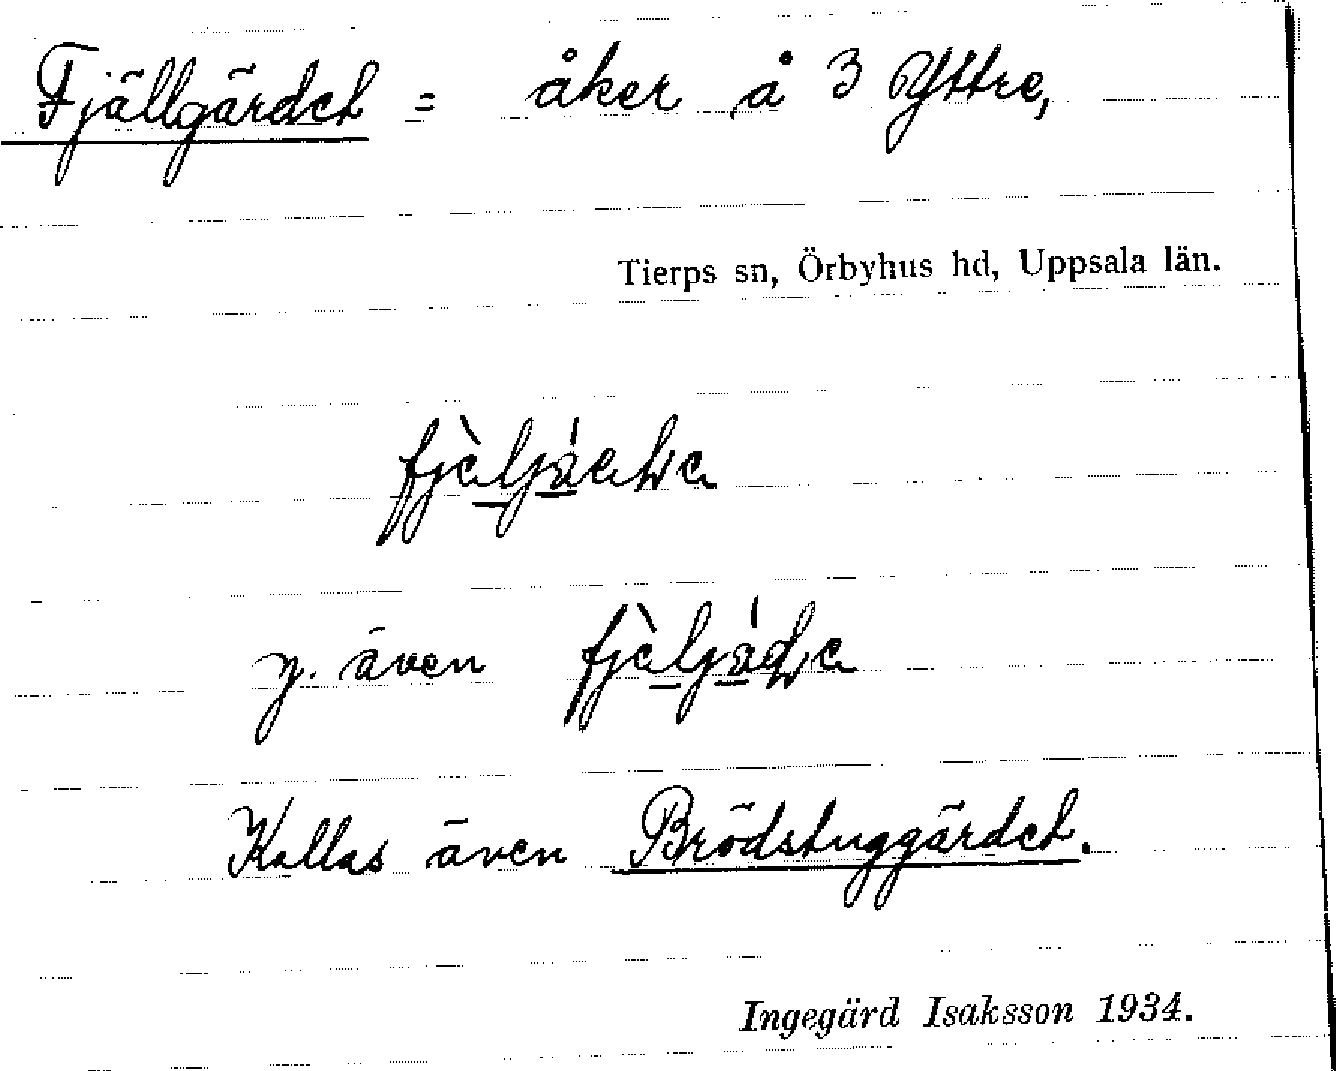 Fjällgärdet = åker å 3 Yttre,
Tierps sn, Örbyhus hd, Uppsala län.
y. även
Kallas även Brödstuggärdet.
Ingegärd Isaksson 1934.